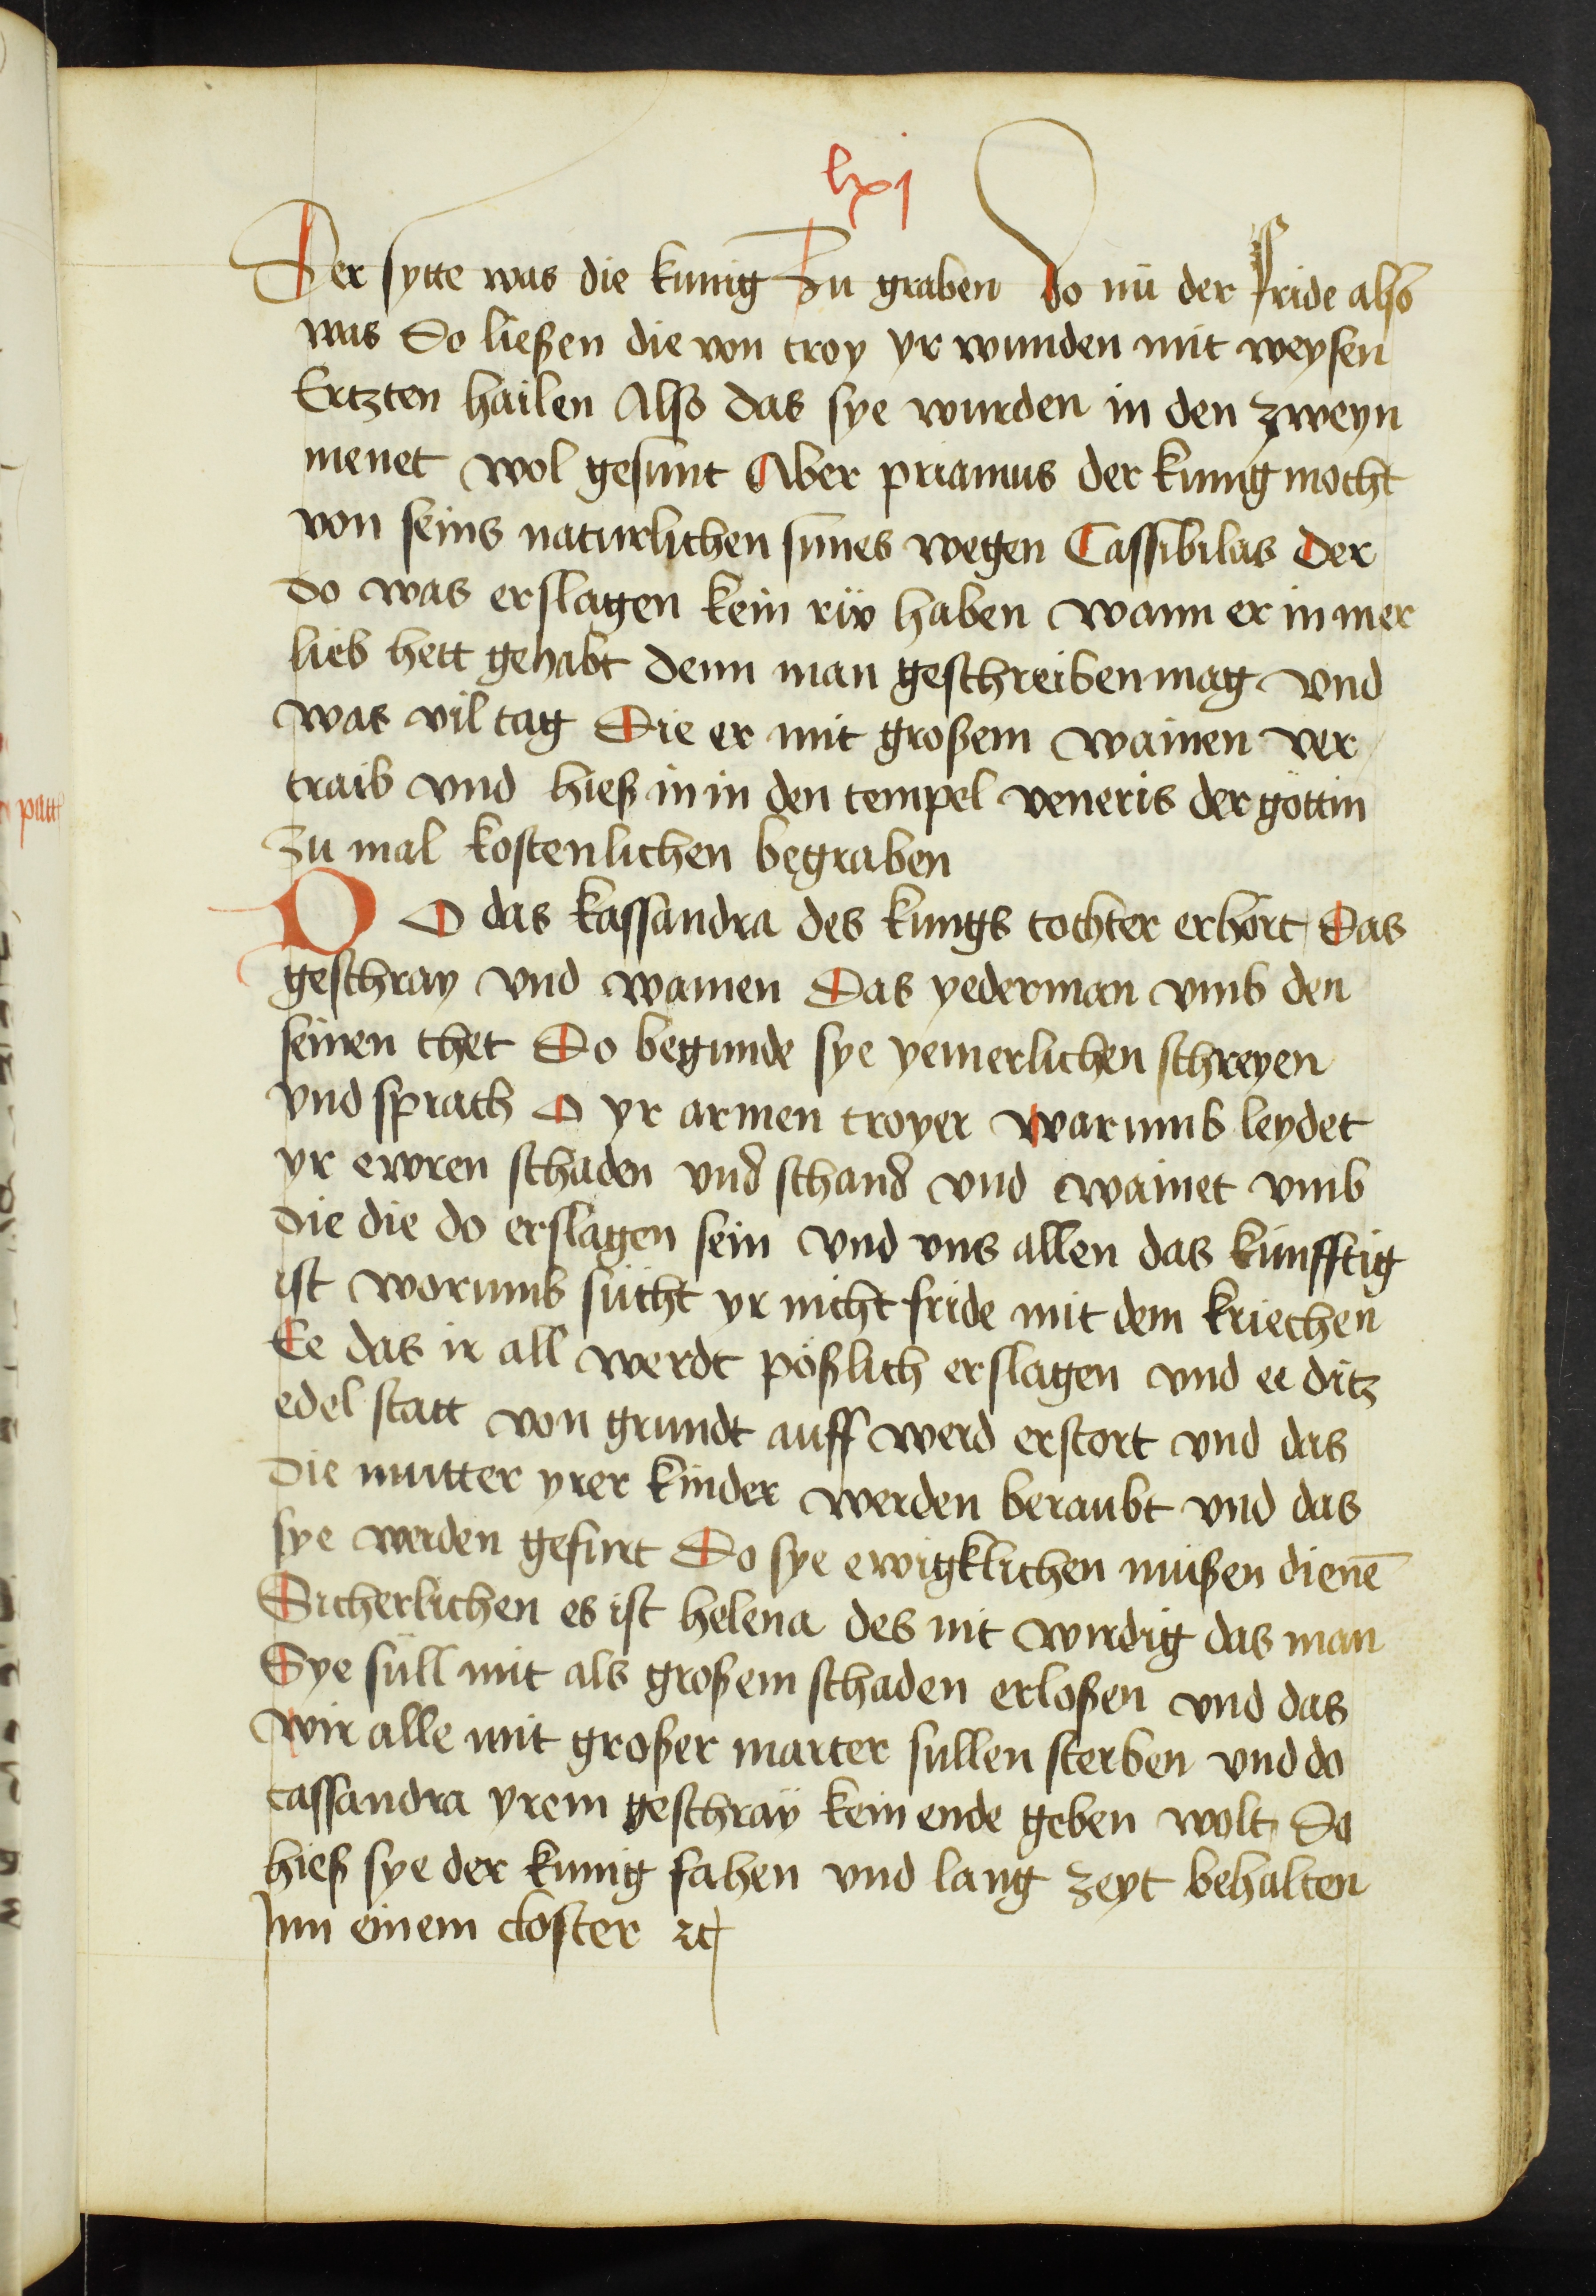 lxj
Der sytte was die kunig Zu graben Do nü der fride also
was Do ließen die von troy yr wunden mit weysen
Ertzten hailen Also das sye wurden in den zweyn
menet wol gesunt Aber priamus der kunig mocht
von seins naturlichen sunes wegen Cassibilas Der
do was erslagen kein rüw haben wann er in mer
lieb hett gehabt denn man geschreiben mag vnd
was vil tag Die er mit großem wainen ver
traib vnd hieß in in den tempel veneris der göttin
zu mal kostenlichen begraben
DO das kassandra des kungs tochter erhort Das
geschray vnd wainen Das yederman vmb den
seinen thet Do begunde sye yemerlichen schreyen
vnd sprach O yr armen troyer warumb leydet
yr ewren schaden vnd schand vnd wainet vmb
die die do erslagen sein vnd vns allen das kunfftig
ist worumb sucht yr nicht fride mit dem kriechen
Ee das ir all werdt pößlich erslagen vnd ee ditz
edel statt von grundt auff werd erstort vnd das
die mutter yrer kinder werden beraubt vnd das
sye werden gefurt Do sye ewigklichen müßen dienē
Sicherlichen es ist helena des nit wirdig das man
Sye süll mit als großem schaden erloßen vnd das
wir alle mit großer marter sullen sterben vnd do
cassandra yrem geschraÿ kein ende geben wolt Do
hieß sye der kunig fahen vnd lang zeyt behalten
Inn einem closter ꝛc